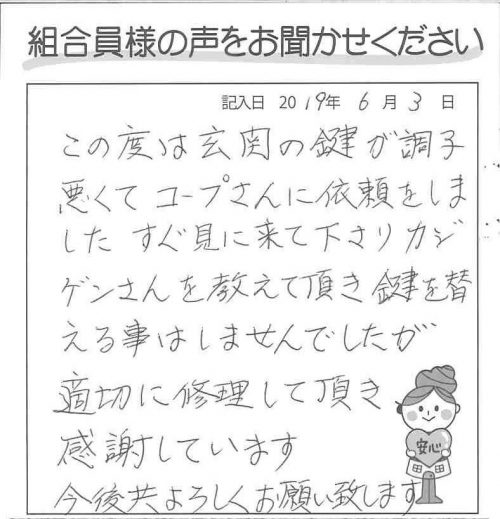 組合員様の声をお聞かせください
記入日 2019年 6月 3日
この度は玄関の鍵が調子
悪くてコープさんに依頼をしま
した すぐ見に来て下さりカジ
ゲンさんを教えて頂き鍵を替
える事はしませんでしたが
適切に修理して頂き
感謝しています
今後共よろしくお願い致します
安心